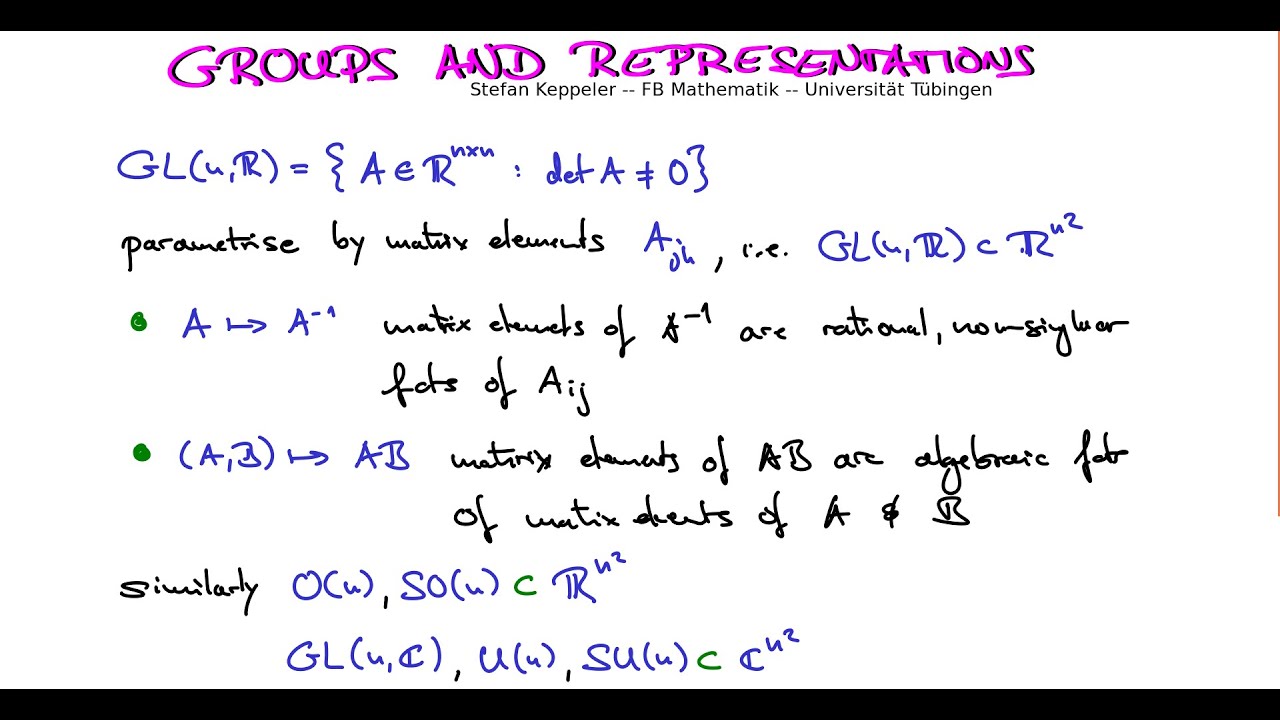 GROUPS AND REPRESENTATIONS
Stefan Keppeler -- FB Mathematik -- Universität Tübingen
GL(n,ℝ) = { A ∈ ℝⁿˣⁿ : det A ≠ 0 }
parametrise by matrix elements A_jk, i.e. GL(n,ℝ) ⊂ ℝ^n²
• A ↦ A⁻¹ matrix elemets of A⁻¹ are rational, non-singular
fcts of A_ij
• (A,B) ↦ AB matrix elements of AB are algebraic fcts
of matrix elements of A & B
similarly O(n), SO(n) ⊂ ℝ^n²
GL(n,ℂ), U(n), SU(n) ⊂ ℂ^n²